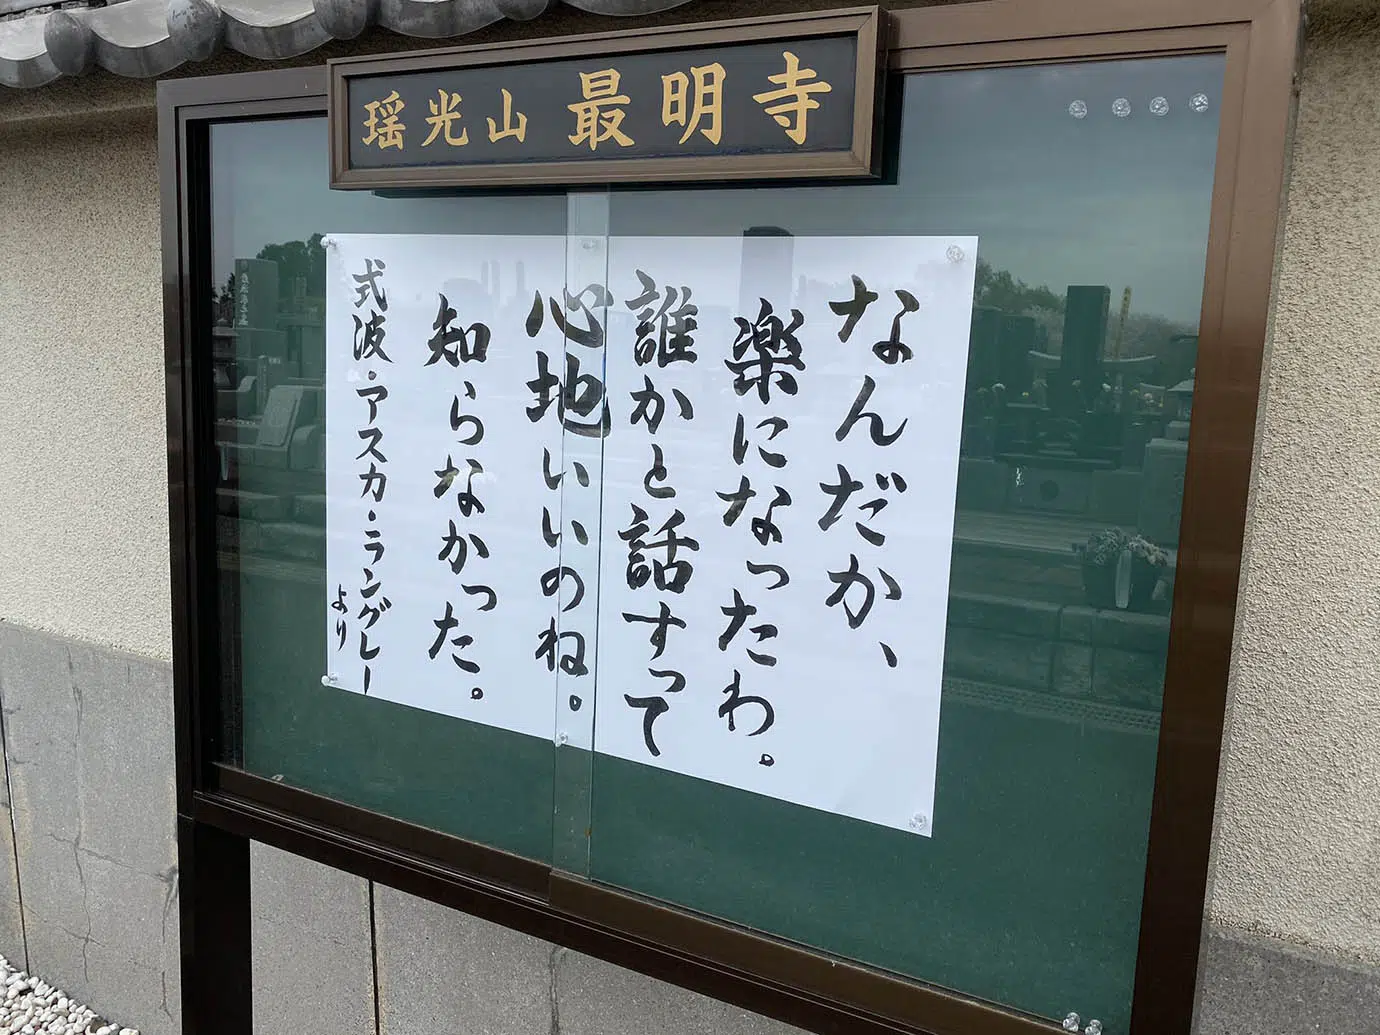 瑶光山 最明寺
なんだか、
楽になったわ。
誰かと話すって
心地いいのね。
知らなかった。
式波・アスカ・ラングレー
より